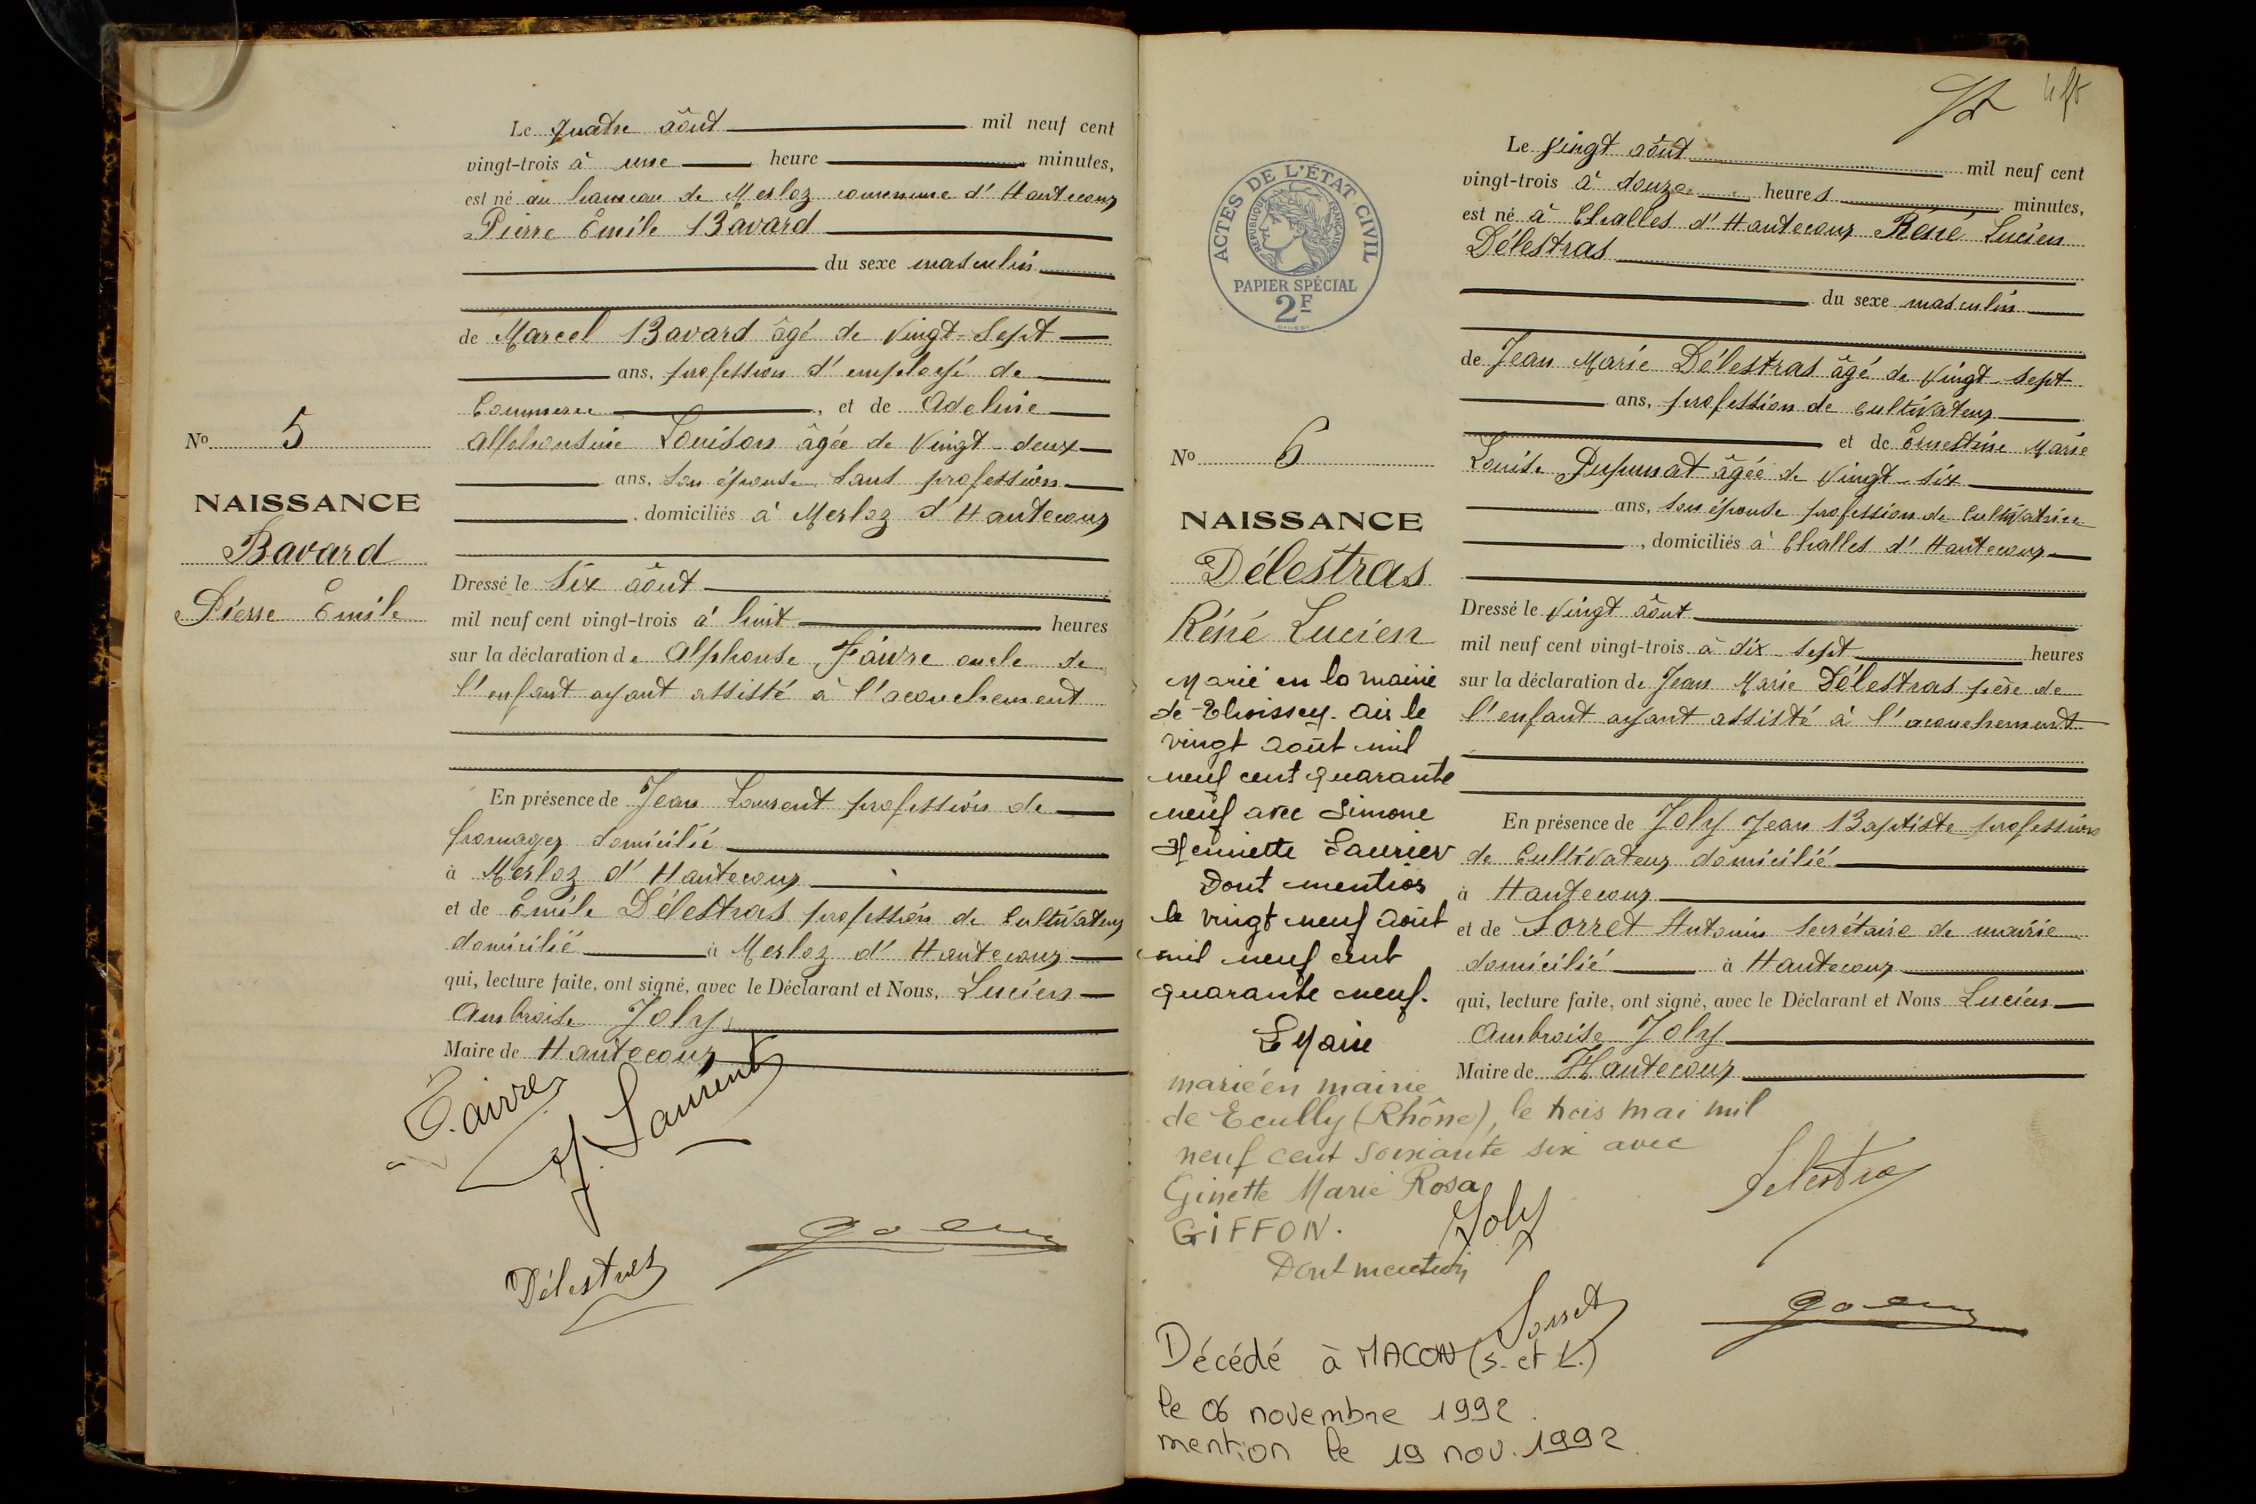 Le quatre aôut mil neuf cent
vingt-trois à une heure minutes,
est né au hameau de Merloz commune d'Hautecour
Pierre Emile Bavard
du sexe masculin
de Marcel Bavard âgé de vingt-sept
ans, profession d'employé de
Commerce, et de Adeline
Alphonsine Louison âgée de vingt-deux
ans, son épouse sans profession
, domiciliés à Merloz d'Hautecour
Dressé le six aôut
mil neuf cent vingt-trois à huit heures
sur la déclaration de Alphonse Faivre oncle de
l'enfant ayant assisté à l'acouchement
En présence de Jean Laurent profession de
fromager domicilié
à Merloz d'Hautecour
et de Emile Délestras profession de Cultivateur
domicilié à Merloz d'Hautecour
qui, lecture faite, ont signé, avec le Déclarant et Nous, Lucien
Ambroise Joly
Maire de Hautecour
Nº 5
NAISSANCE
Bavard
Pierre Emile
Faivre
J. Laurent
Délestras
ACTES DE L'ÉTAT CIVIL
RÉPUBLIQUE FRANÇAISE
PAPIER SPÉCIAL
2F
Le vingt aôut mil neuf cent
vingt-trois à douze heures minutes,
est né à Challes d'Hautecour Réné Lucien
Délestras
du sexe masculin
de Jean Marie Délestras âgé de vingt-sept
ans, profession de cultivateur
et de Ernestine Marie
Louise Pupunat âgée de vingt-six
ans, son épouse profession de Cultivatrice
, domiciliés à Challes d'Hautecour
Dressé le vingt aôut
mil neuf cent vingt-trois à dix-sept heures
sur la déclaration de Jean Marie Délestras père de
l'enfant ayant assisté à l'acouchement
En présence de Joly Jean Baptiste profession
de Cultivateur domicilié
à Hautecour
et de Sorret Antonin secrétaire de mairie
domicilié à Hautecour
qui, lecture faite, ont signé, avec le Déclarant et Nous Lucien
Ambroise Joly
Maire de Hautecour
Nº 6
NAISSANCE
Délestras
Réné Lucien
Marié en la mairie
de Thoissey. Ain le
vingt août mil
neuf cent quarante
neuf avec Simone
Henriette Saurier
Dont mention
le vingt neuf août
mil neuf cent
quarante neuf.
Le Maire
marié en mairie
de Ecully (Rhône), le trois mai mil
neuf cent soixante six avec
Ginette Marie Rosa
GIFFON.
Dont mention
Joly
Delestras
Sorret
Décédé à MACON (S. et L.)
le 06 novembre 1992.
mention le 19 nov. 1992.